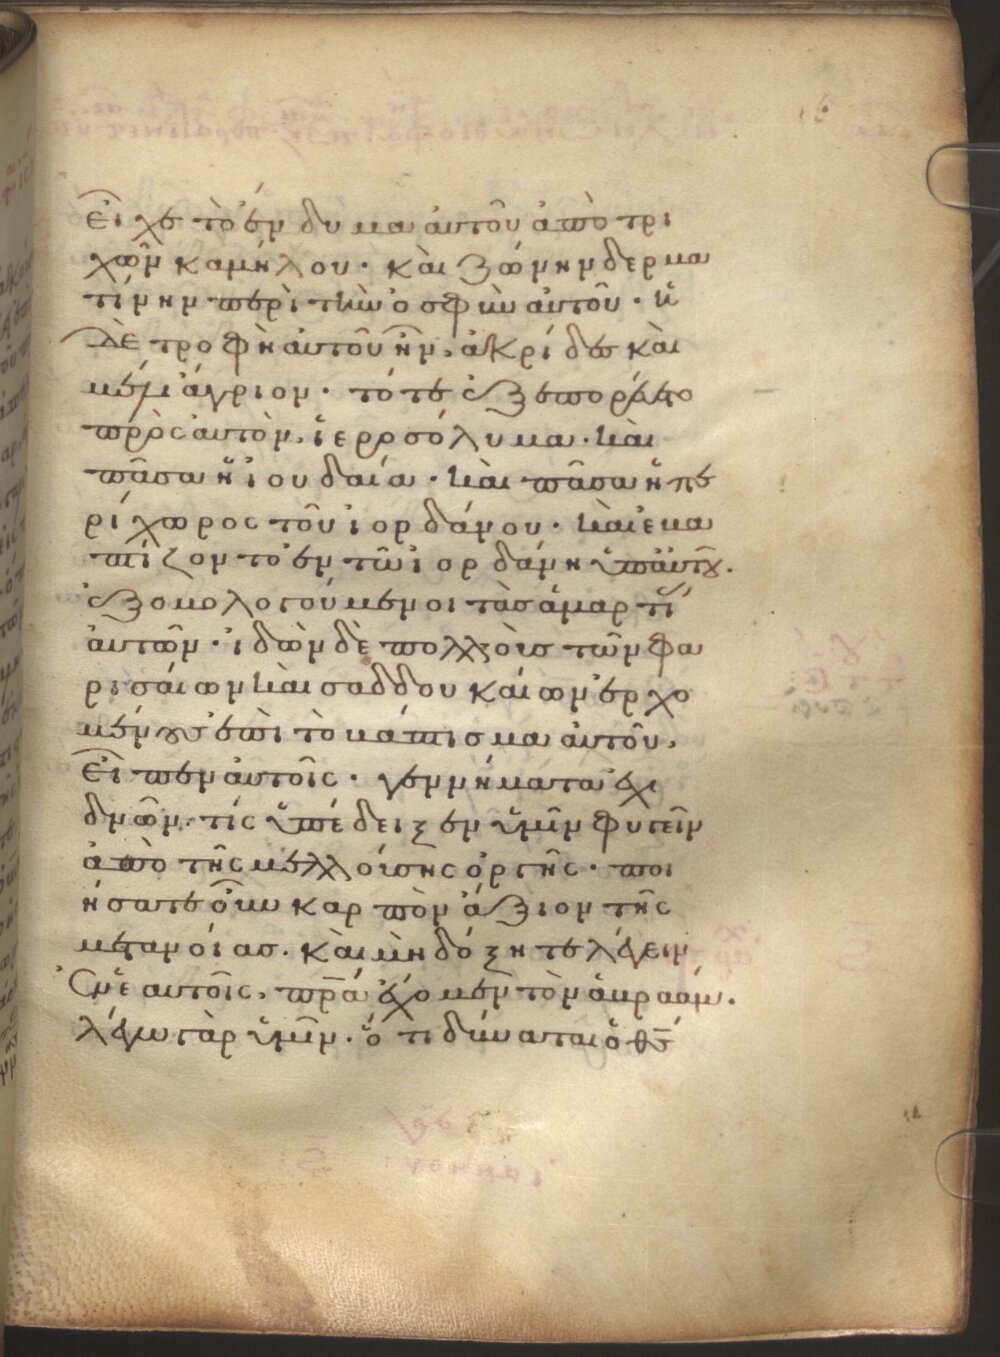 6
εἶχε τὸ ἔνδυμα ἀυτοῦ ἀπὸ τρι
χῶν καμήλου· καὶ ζώνην δερμα
τίνην περὶ τὴν ὀσφὺν ἀυτοῦ· ἡ
δὲ τροφὴ ἀυτοῦ ἦν, ἀκρίδες καὶ
μέλι ἄγριον· τότε ἐξεπορέυετο
πρὸς ἀυτὸν, ἱεροσόλυμα· καὶ
πᾶσα ἡ ἰουδαία· καὶ πᾶσα ἡ πε
ρίχωρος τοῦ ἰορδάνου· καὶ ἐβα
πτίζοντο ἐν τῶ ἰορδάνη ὑπ' ἀυτοῦ.
ἐξομολογούμενοι τὰς ἁμαρτί
ἀυτῶν· ἰδὼν δὲ πολλοὺς τῶν φα
ρισάιων καὶ σαδδουκάιων ἐρχο
μένους ἐπὶ τὸ βάπτισμα ἀυτοῦ,
εἶπεν ἀυτοῖς· γεννήματα ἐχι
δνῶν, τίς ὑπέδειξεν ὑμῖν φυγεῖν
ἀπὸ τῆς μελλούσης ὀργῆς· ποι
ήσατε οὖν καρπὸν ἄξιον τῆς
μετανοίας. καὶ μὴ δόξητε λέγειν
ἐν ἑαυτοῖς, πρα ἔχομεν τὸν ἀβραάμ.
λέγω γὰρ ὑμῖν· ὅτι δύναται ὁ θς